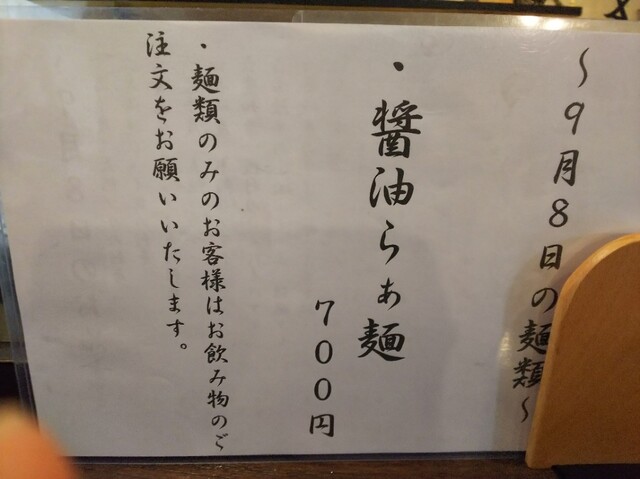 ～9月8日の麺類～
・醤油らぁ麺
700円
・麺類のみのお客様はお飲み物のご
注文をお願いいたします。